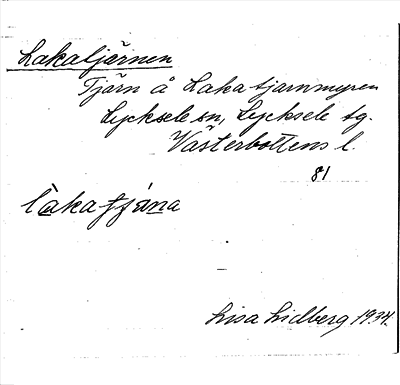 Lakatjärnen
Tjärn å Lakatjärnmyren
Lycksele sn, Lycksele tg.
Västerbottens l.
81
làkatjána
Lisa Lidberg 1934.